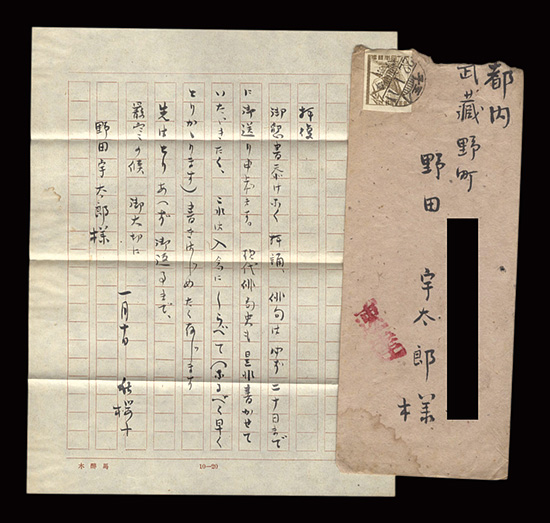 拝復
御懇書忝けなく拝誦、俳句は必ず二十日まで
に御送り申上ます。現代俳句史も是非書かせて
いたゞきたく、これは入念にしらべて(なるべく早く
とりかゝります)書きはじめたく存じます
先はとりあへず御返事まで、
厳寒の候 御大切に
一月十日 秋櫻子
野田宇太郎様
10—20
都内
武藏野町
野田 宇太郎様